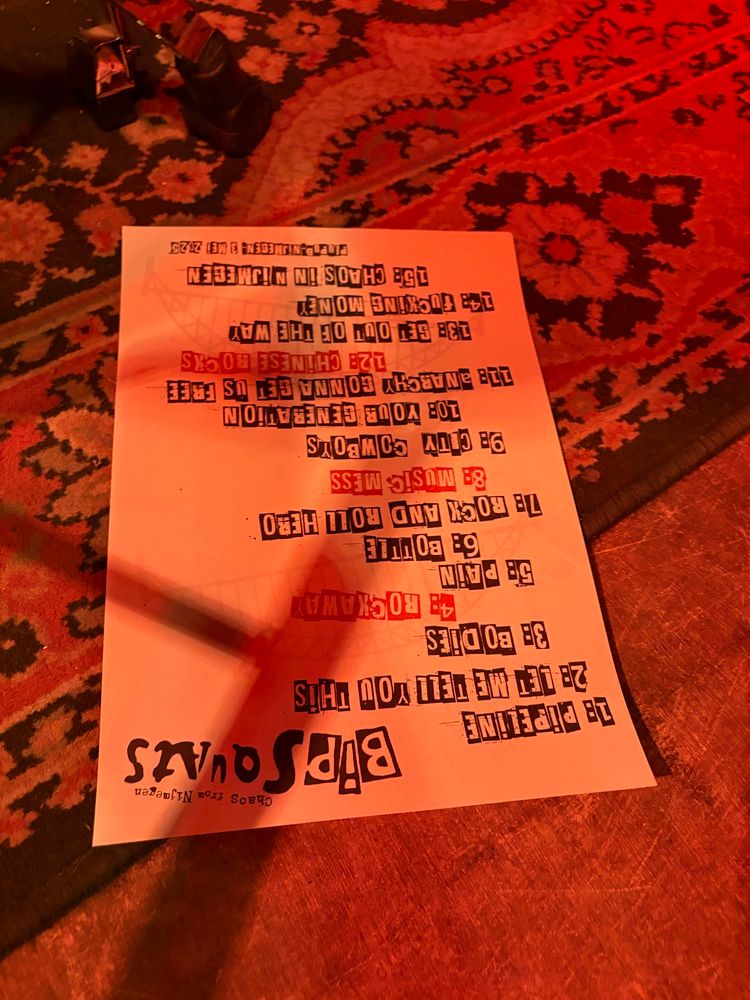 Chaos from Nijmegen
1: PiPELiNE
2: LET ME TELL YOU THiS
3: BODiES
4: ROCKAWAY
5: PAiN
6: BOTTLE
7: ROCK AND ROLL HERO
8: MUSiC MESS
9: CiTY COWBOYS
10: YOUR GENERATiON
11: ANARCHY GONNA SET US FREE
12: CHiNESE ROCKS
13: GET OUT OF THE WAY
14: FUCKiNG MONEY
15: CHAOS iN NiJMEGEN
NiJMEGEN, 3 MEi 2025